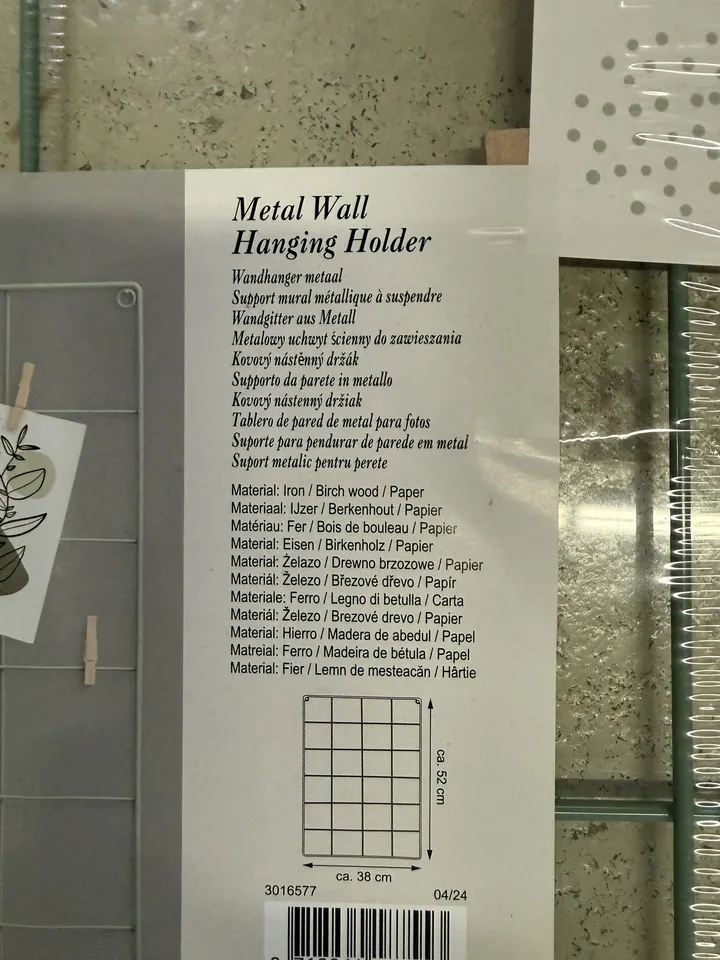 Metal Wall
Hanging Holder
Wandhanger metaal
Support mural métallique à suspendre
Wandgitter aus Metall
Metalowy uchwyt ścienny do zawieszania
Kovový nástěnný držák
Supporto da parete in metallo
Kovový nástenný držiak
Tablero de pared de metal para fotos
Suporte para pendurar de parede em metal
Suport metalic pentru perete
Material: Iron / Birch wood / Paper
Materiaal: IJzer / Berkenhout / Papier
Matériau: Fer / Bois de bouleau / Papier
Material: Eisen / Birkenholz / Papier
Materiał: Żelazo / Drewno brzozowe / Papier
Materiál: Železo / Březové dřevo / Papír
Materiale: Ferro / Legno di betulla / Carta
Materiál: Železo / Brezové drevo / Papier
Material: Hierro / Madera de abedul / Papel
Matreial: Ferro / Madeira de bétula / Papel
Material: Fier / Lemn de mesteacăn / Hârtie
ca. 52 cm
ca. 38 cm
3016577 04/24